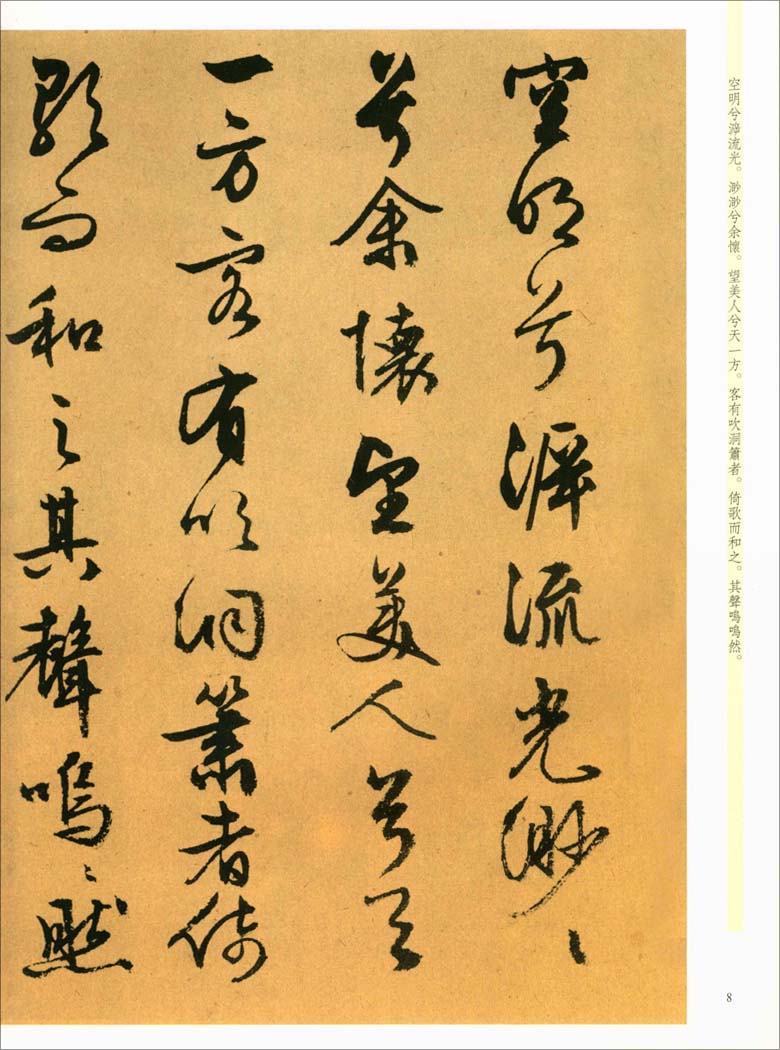 空明兮流光。渺渺兮余懷。望美人兮天一方。客有吹洞簫者。倚歌而和之。其聲嗚嗚然。
空明兮流光渺〻
兮余懷望美人兮天
一方客有吹洞簫者倚
歌而和之其聲嗚〻然
8